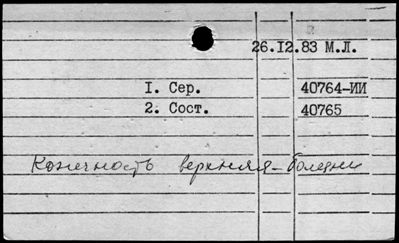 26.12.83 М.Л.
1. Сер. 40764-ИИ
2. Сост. 40765
Конечность верхняя - болезни